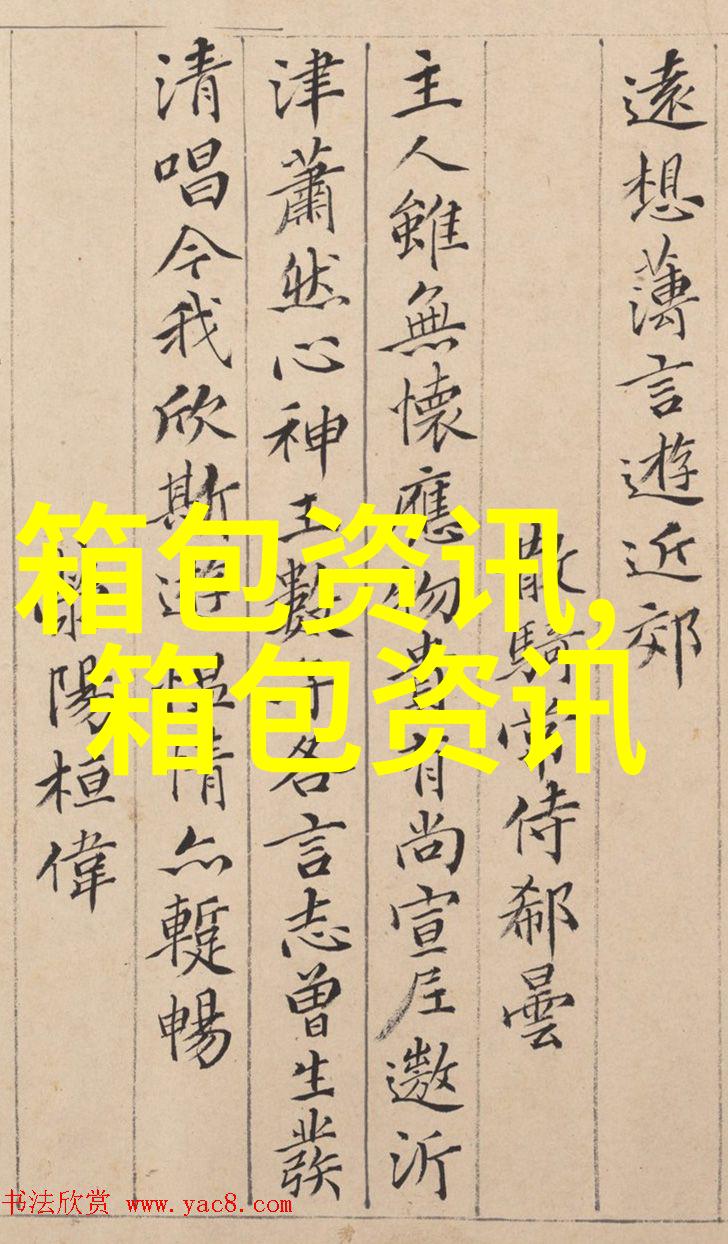 遠想薄言遊近郊
散騎常侍郗曇
主人雖無懷應物貴有尚宣尼遨沂
津蕭然心神王數子各言志曾生發
清唱今我欣斯遊慍情亦暫暢
陽桓偉
箱包资讯,
箱包资讯
书法欣赏 www.yac8.com